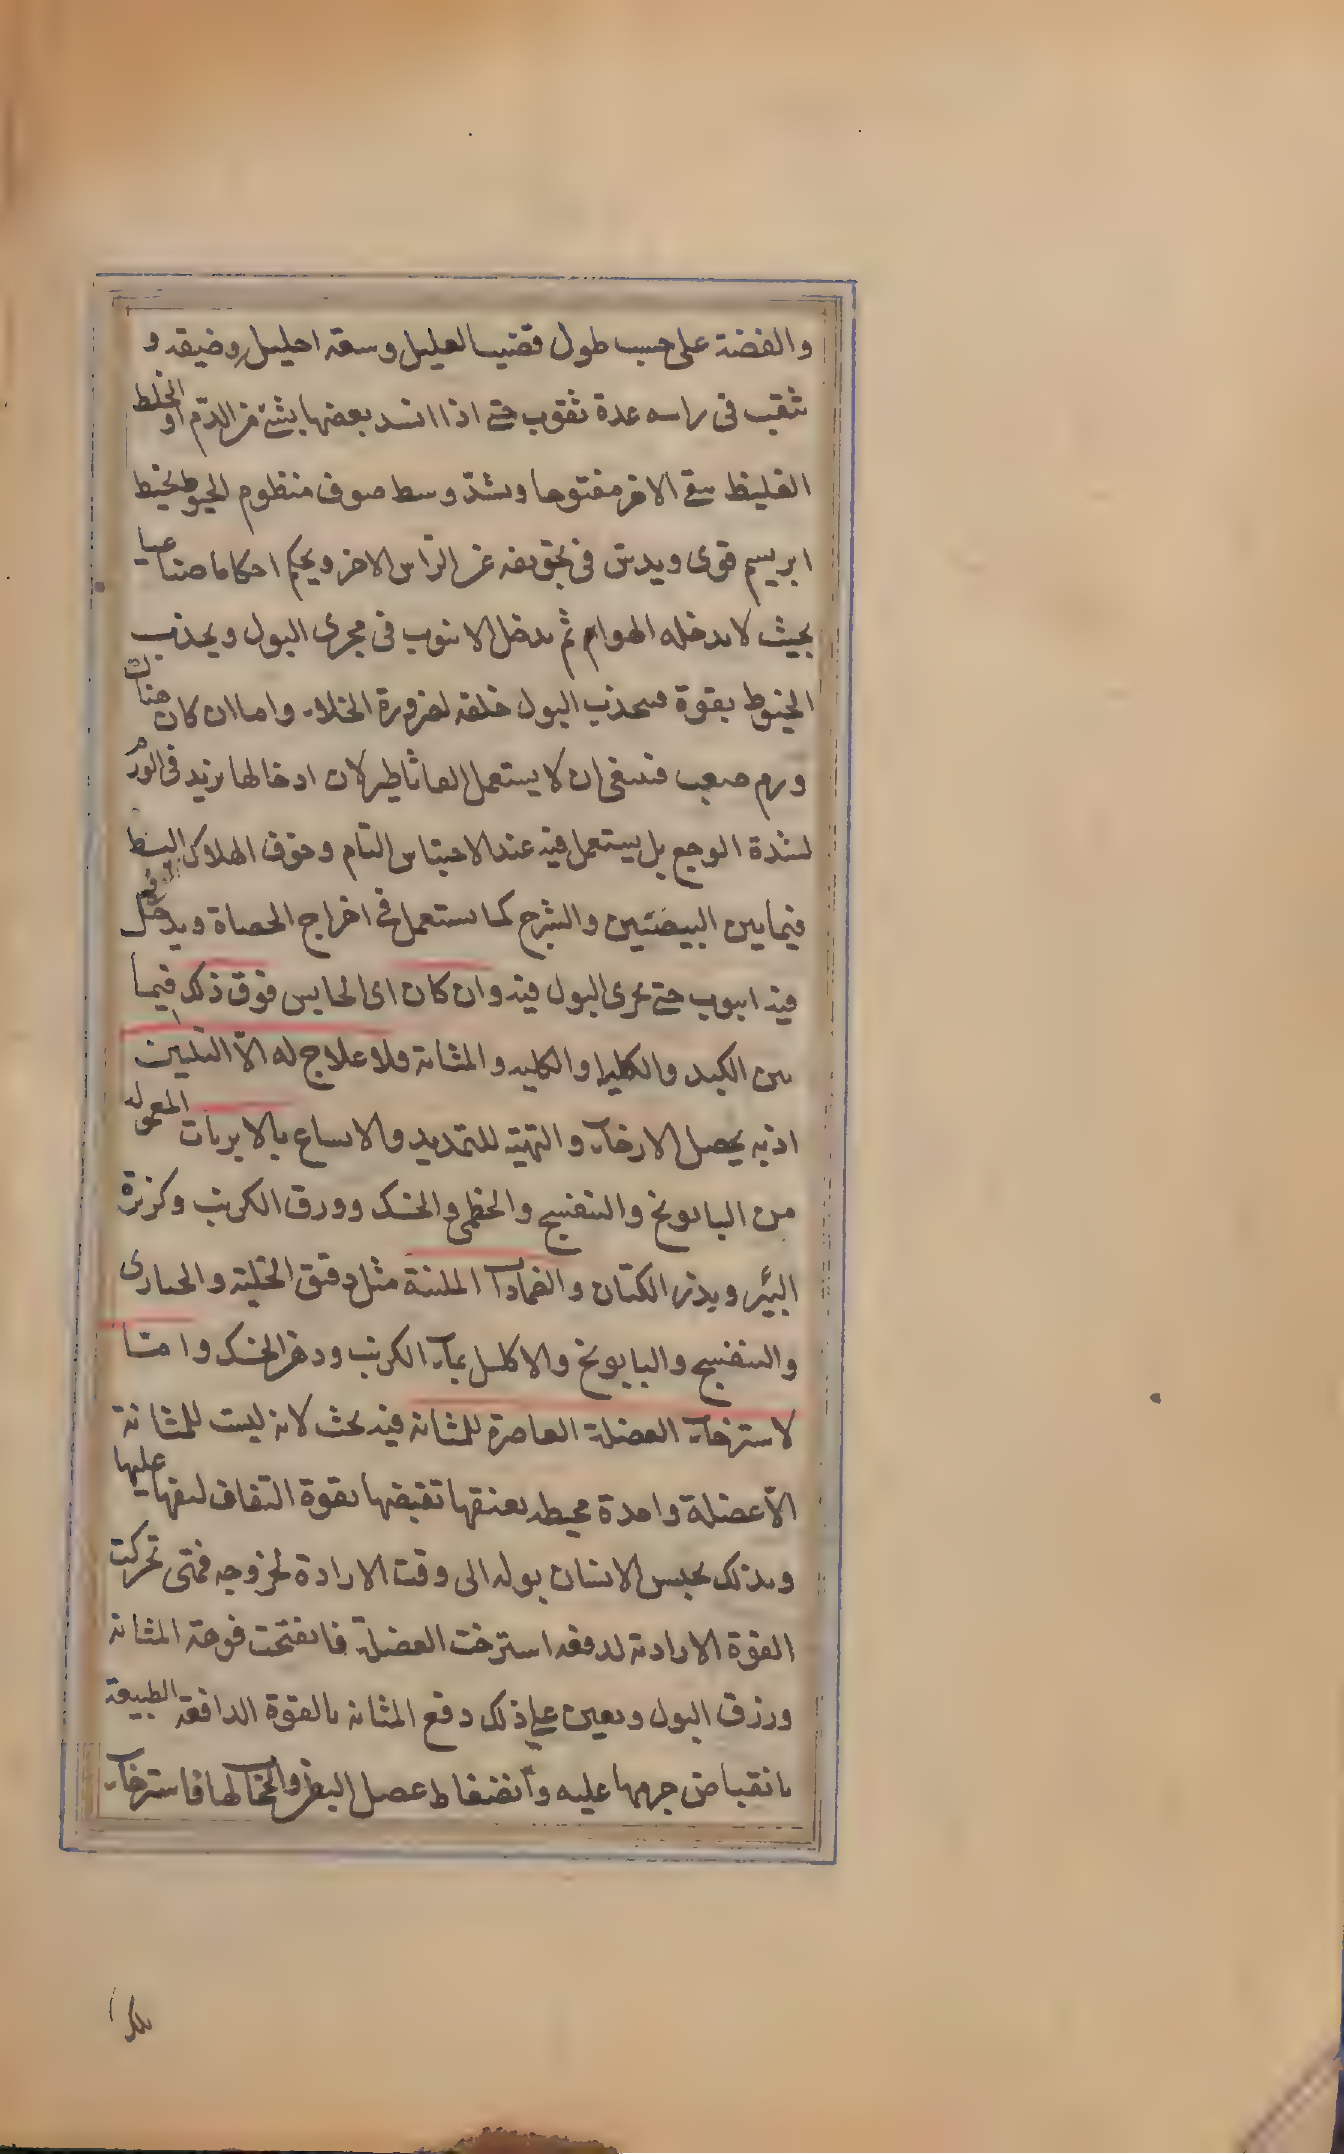 والفضة على حسب طول قضيب العليل وسعة احليله وضيقه و
ثقب فى راسه عدة ثقوب حتى اذا انسد بعضها بشئ من الدم او الخلط
الغليظ بقى الاخر مفتوحا ويشدّ وسط صوف منظوم الخيوط بخيط
ابريسم قوى ويدس فى تجويفه عن الرّاس الاخر ويحكم احكاما صناعيا
بحيث لا يدخله الهواء ثم يدخل الانبوب فى مجرى البول ويجذب
الخيوط بقوة فينجذب البول خلفه لضرورة الخلاء واما ان كان هناك
ورم صعب فينبغى ان لا يستعمل القاثاطير لان ادخالها يزيد فى الورم
لشدة الوجع بل يستعمل فيه عند الاحتباس التام وخوف الهلاك البط
فيما بين البيضتين والشرج كما يستعمل فى اخراج الحصاة ويدخل
فيه انبوب حتى يجرى البول فيه وان كان اى الحابس فوق ذلك فيما
بين الكبد والكلية او الكلية والمثانة فلا علاج له الّا التليين
اذ به يحصل الارخاء والتهيئة للتمديد والاتساع بالابزنات المعمولة
من البابونج والبنفسج والخطمى والحسك وورق الكرنب وكزبرة
البئر وبذر الكتان والضمادات الملينة مثل دقيق الحلبة والخبازى
والبنفسج والبابونج والاكليل بماء الكرنب ودهن الحسك وامّا
لاسترخاء العضلة العاصرة للمثانة فيه بحث لانه ليست للمثانة
الّا عضلة واحدة محيطة بعنقها تقبضها بقوة التفاف ليفها عليها
وبذلك يحبس الانسان بوله الى وقت الارادة لخروجه فمتى تحركت
القوة الارادية لدفعه استرخت العضلة فانفتحت فوهة المثانة
وزرق البول ويعين على ذلك دفع المثانة بالقوة الدافعة الطبيعية
بانقباض جرمها عليه وانضغاط عضل البطن والحجاب لها فاسترخاء